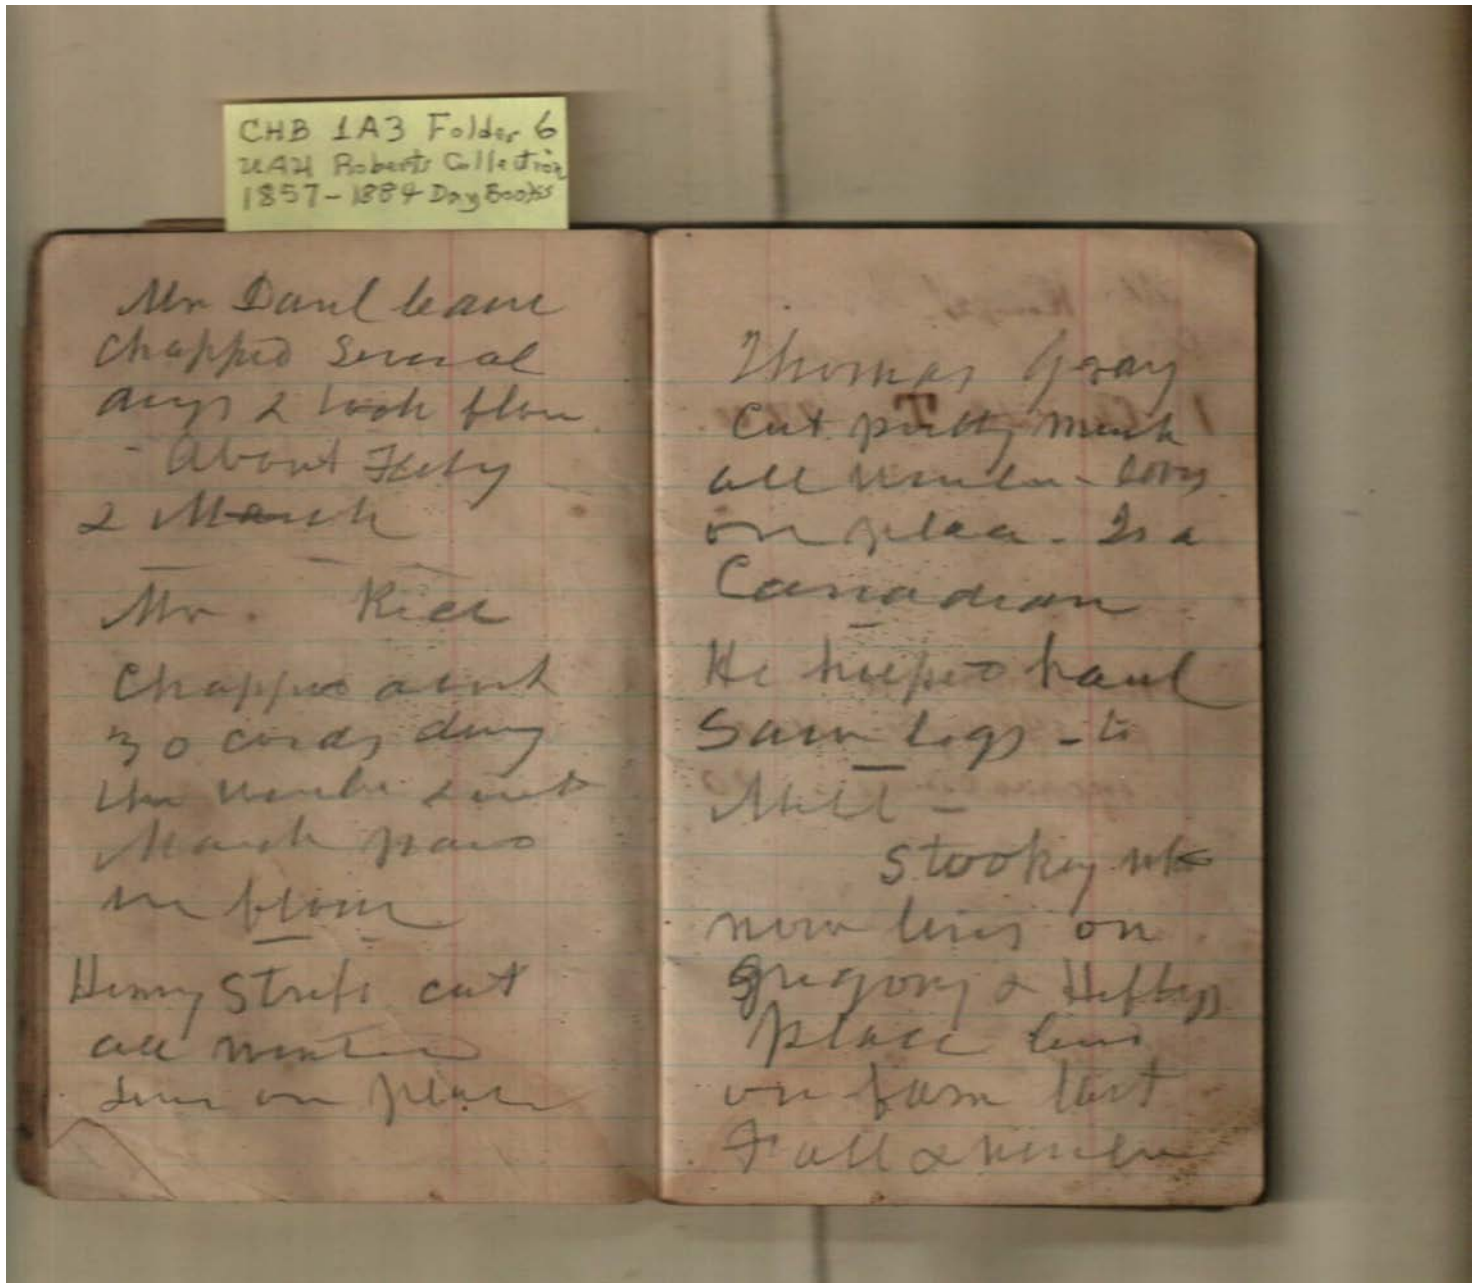 CHB 1A3 Folder 6
UAH Roberts Collection
1857-1884 Day Books
Mr
Chopped Several
days & took flour
- About Feby
& March
Mr. Rice
Chopped about
30 cords during
the winter &
March paid
in flour
Henry cut
all winter
on place
Thomas Gray
Cut pretty much
all winter - lives
on place - Is a
Canadian
He helped haul
Saw Logs - to
Mill -
Stookey who
now lives on
Gregory &
place lived
on farm last
Fall & winter